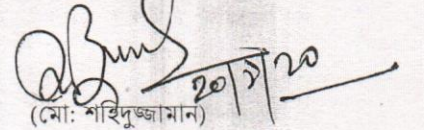 ২০/১/২০
(মো: শহিদুজ্জামান)